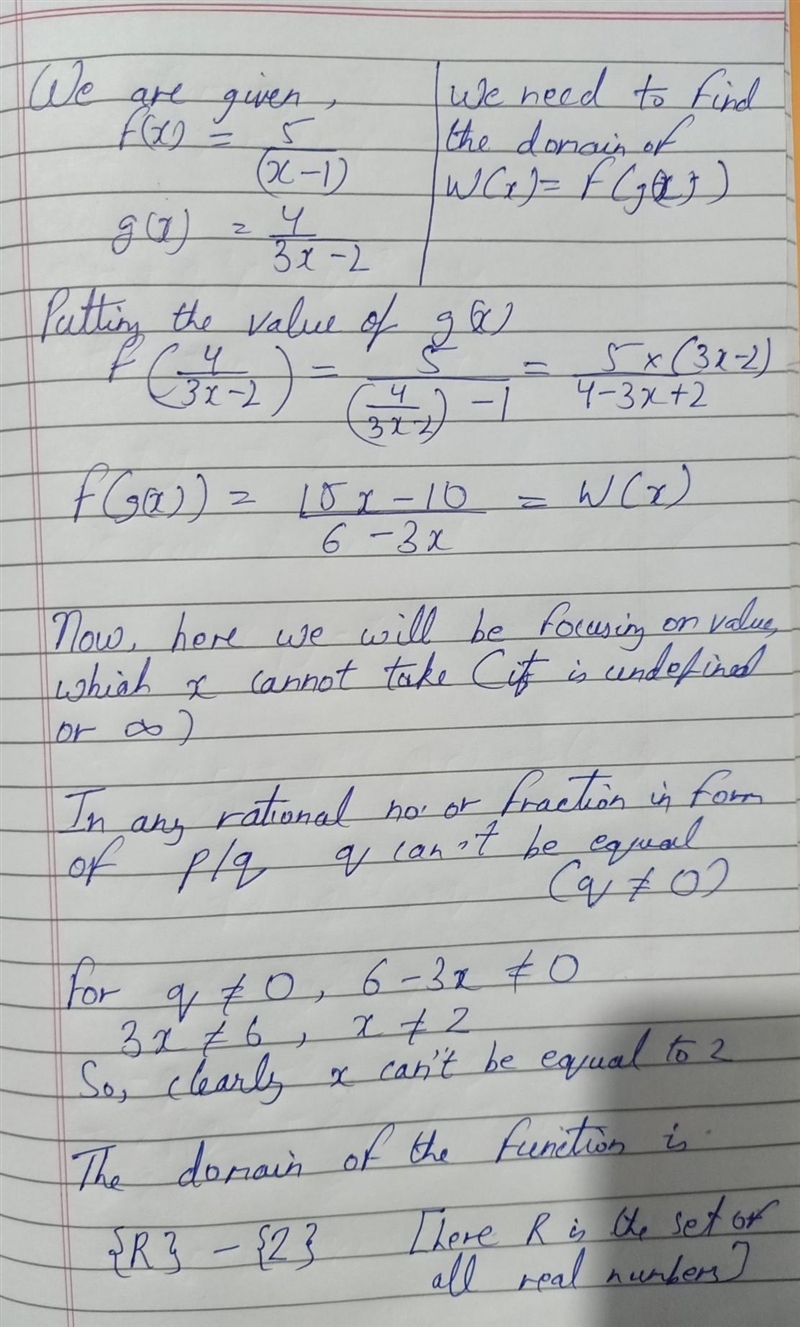 We are given,
f(x) = 5/(x-1)
g(x) = 4/3x-2
We need to find
the domain of
W(x) = f(g(x))
Putting the value of g(x)
f(4/3x-2) = 5/((4/3x-2) -1) = 5×(3x-2)/4-3x+2
f(g(x)) = 15x-10/6-3x = W(x)
Now, here we will be focusing on value,
which x cannot take (it is undefined
or ∞)
In any rational no. or fraction in form
of p/q q can't be equal
(q ≠ 0)
for q ≠ 0, 6-3x ≠ 0
3x ≠ 6, x ≠ 2
So, clearly x can't be equal to 2
The domain of the function is
{R} - {2} [here R is the set of
all real numbers]